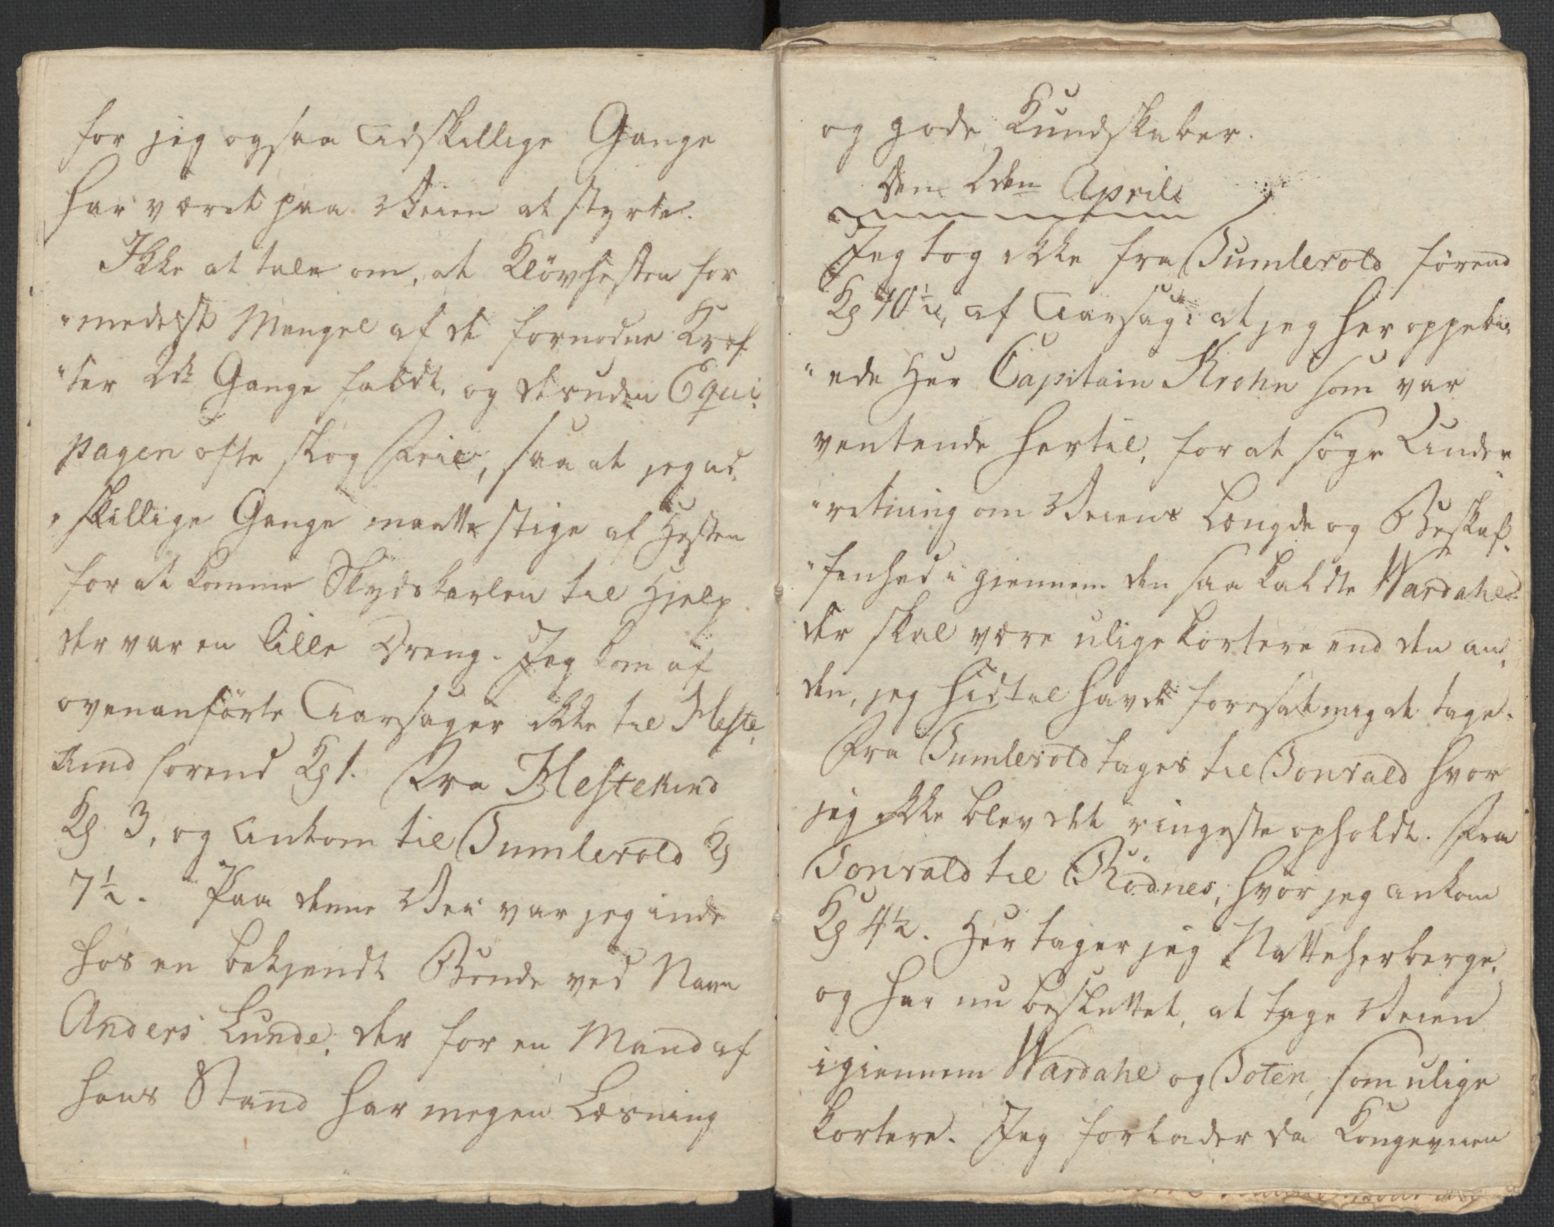 for jeg ogsaa adskillige Gange
har været paa Veien at styrte.
Ikke at tale om, at Kløvhesten for
"medelst Mangel af de fornødne Kræf
"ter 2de Gange faldt, og desuden Equi
pagen ofte slog Feil, saa at jeg ad
"skillige Gange maatte stige af Hesten
for at komme Skydskarlen til Hjelp
der var en lille Dreng. Jeg kom af
ovenanførte Aarsager ikke til Heste
kind førend Kl 1. Fra Hestekind
Kl 3, og ankom til Tumlevold Kl
7½. Paa denne Vei var jeg inde
hos en bekjendt Bonde ved Navn
Anders Lunde, der for en Mand af
hans Stand har megen Læsning
og gode Kundskaber.
Den 2den Aprili
Jeg tog ikke fra Tumlevold førend
Kl 10½, af Aarsag at jeg her oppebi
"ede Her Capitain Krohn som var
ventende hertil, for at søge Under
"retning om Veiens Længde og Beskaf
"fenhed igiennem den saa kaldte Wardahl
der skal være ulige kortere end den an
den, jeg hidtil havde foresat mig at tage.
Fra Tumlevold tages til Tonvald hvor
jeg ikke blev det ringeste opholdt. Fra
Tonvald til Rödnes, hvor jeg ankom
Kl 4½. Her tager jeg Natteherberge,
og har nu besluttet, at tage Veien
igiennem Wardahl og Toten, som ulige
kortere. Jeg forlader da Kongeveien